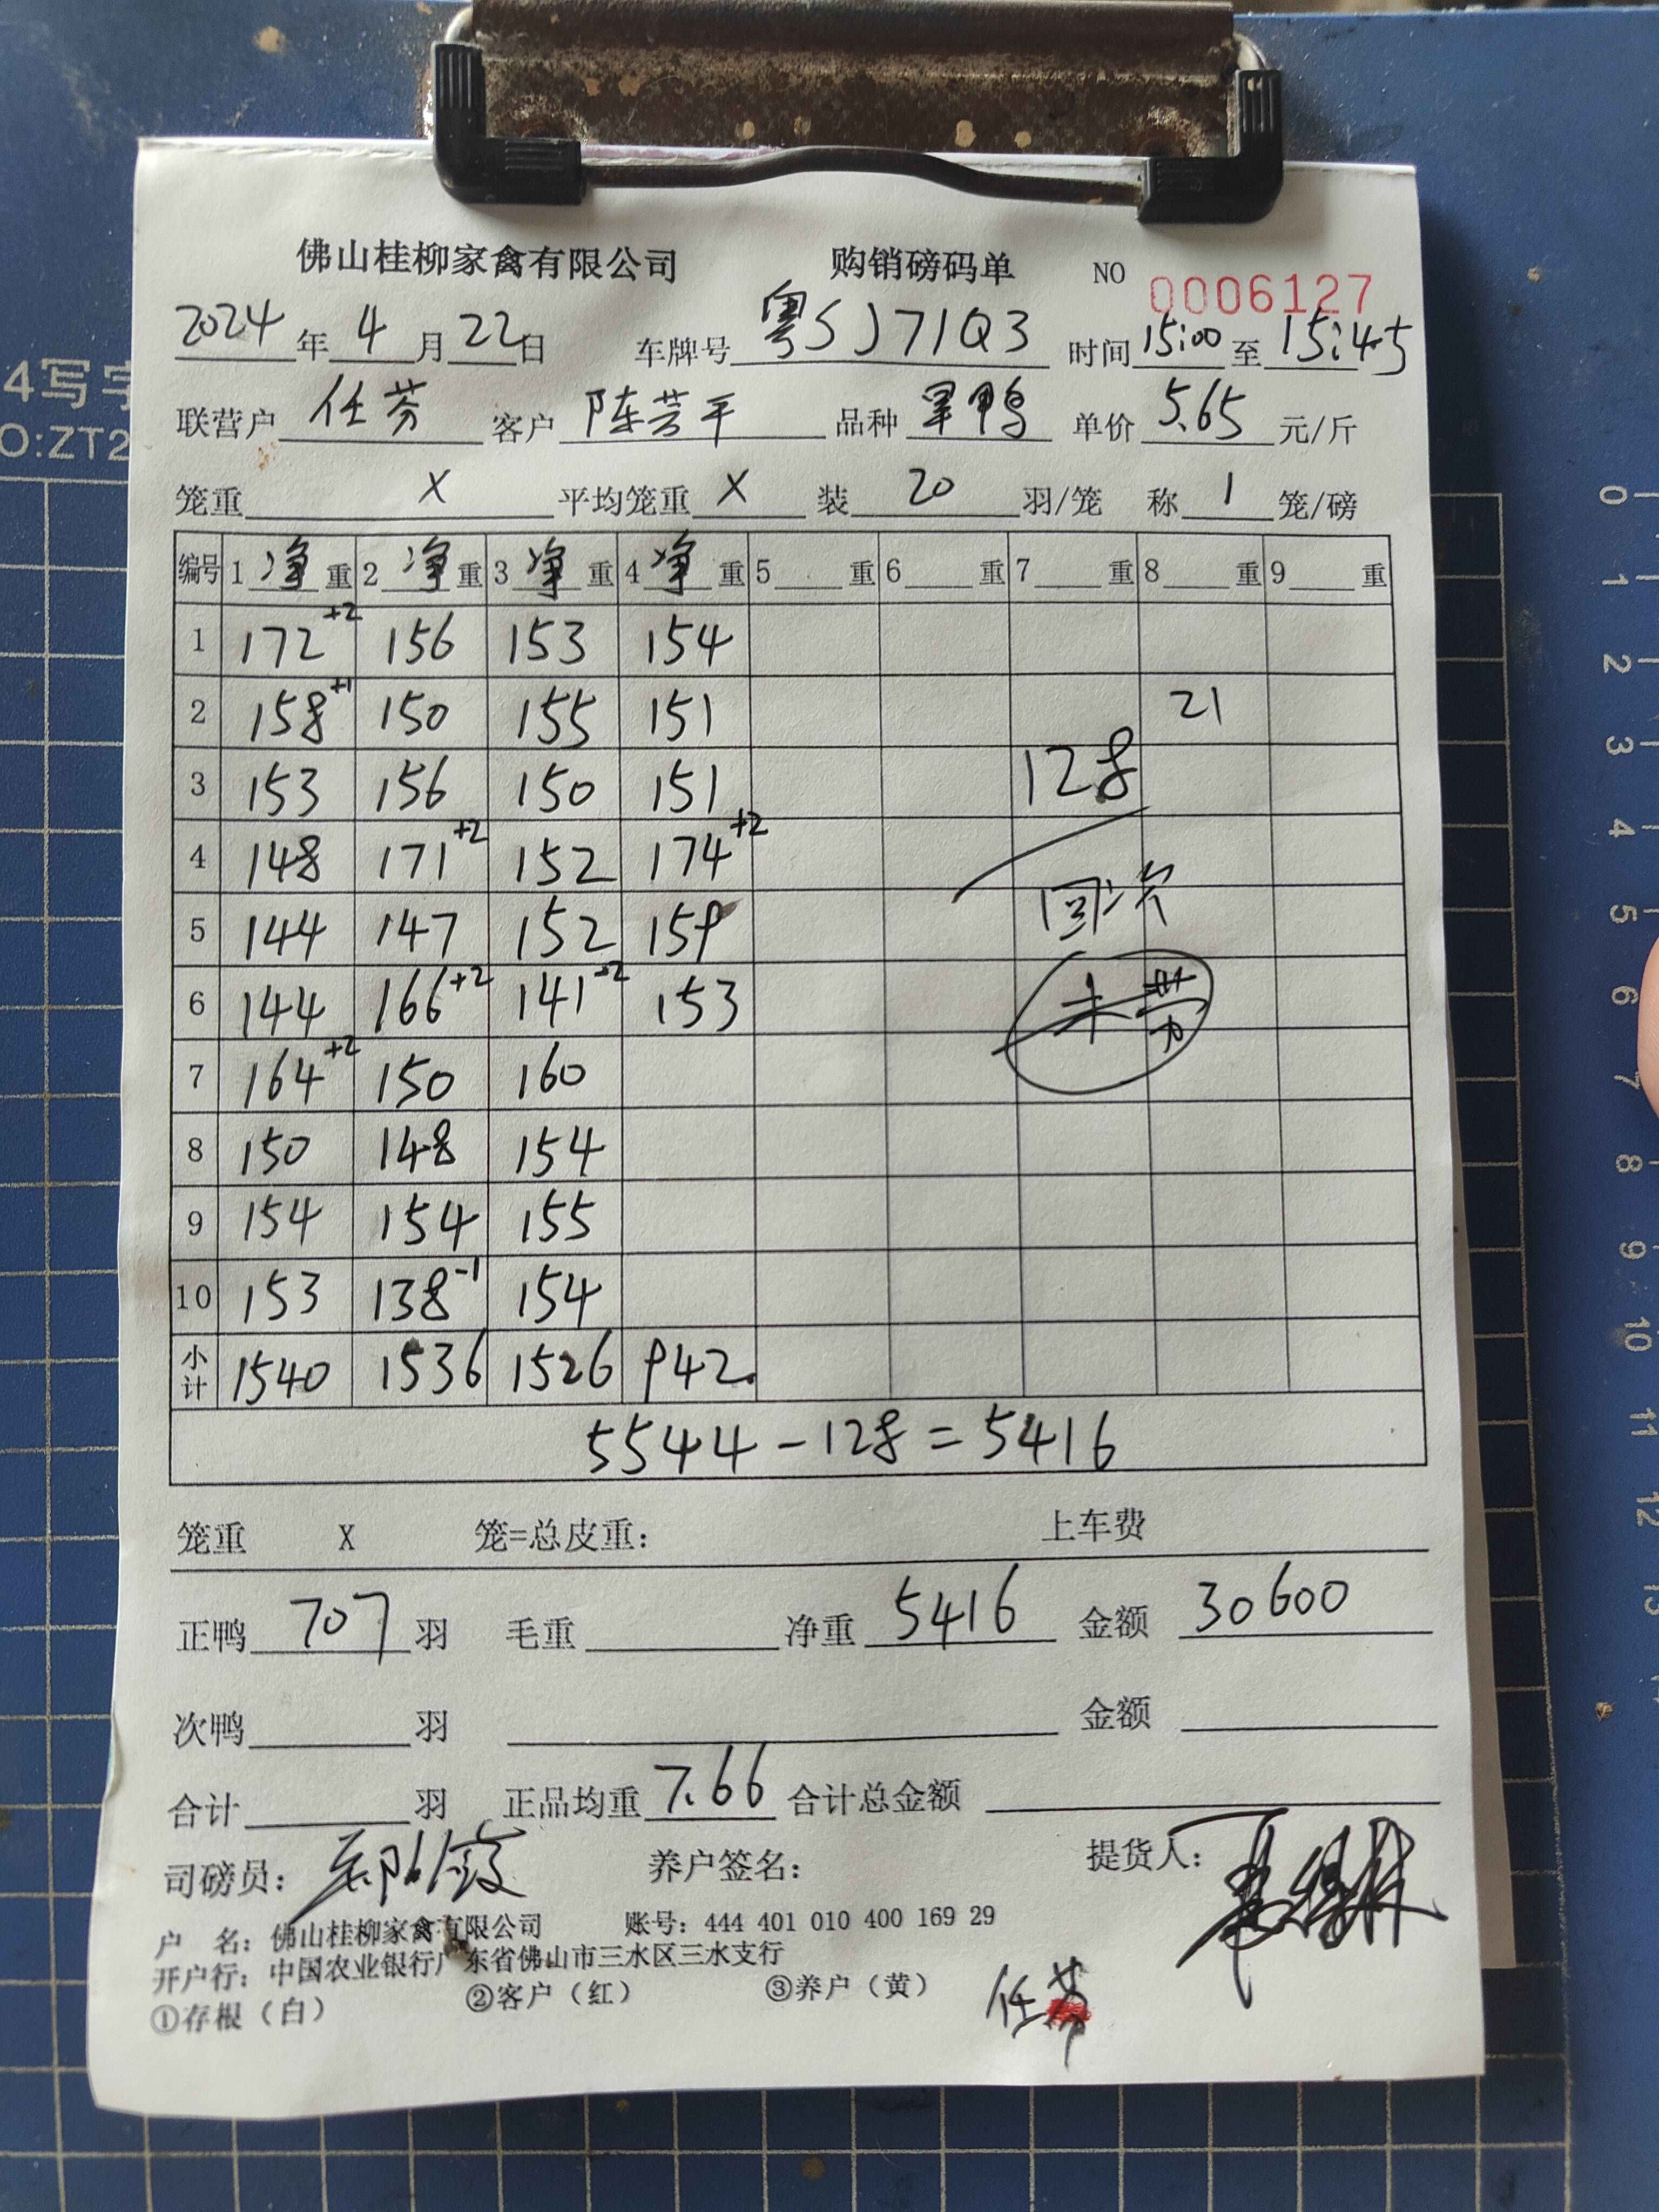 佛山桂柳家禽有限公司 购销磅码单 NO 0006127
2024年4月22日 车牌号 粤SJ71Q3 时间 15:00 至 15:45
联营户 任芬 客户 陈芳平 品种 旱鸭 单价 5.65 元/斤
笼重 X 平均笼重 X 装 20 羽/笼 称 1 笼/磅
编号 1 净重 2 净重 3 净重 4 净重 5 重 6 重 7 重 8 重 9 重
1 172+2 156 153 154
2 158+1 150 155 151 21
3 153 156 150 151 128
4 148 171+2 152 174+2
5 144 147 152 159 回次
6 144 166+2 141-2 153 未带
7 164+2 150 160
8 150 148 154
9 154 154 155
10 153 138-1 154
小计 1540 1536 1526 942.
5544-128=5416
笼重 X 笼=总皮重: 上车费
正鸭 707 羽 毛重 净重 5416 金额 30600
次鸭 羽 金额
合计 羽 正品均重 7.66 合计总金额
司磅员: 养户签名: 提货人:
户 名: 佛山桂柳家禽有限公司 账号: 444 401 010 400 169 29
开户行: 中国农业银行广东省佛山市三水区三水支行
①存根（白） ②客户（红） ③养户（黄）
任芬
4写字
O:ZT2
0
1
2
3
4
5
6
7
8
9
10
11
12
13